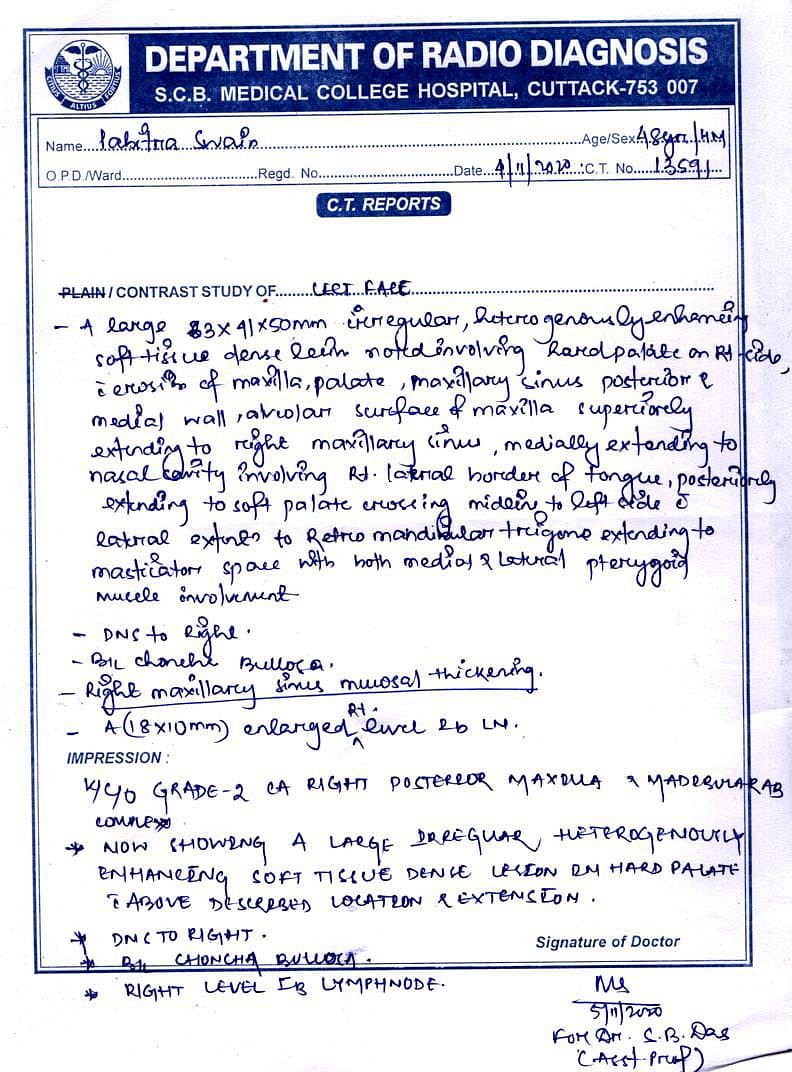 CITIUS ALTIUS FORTIUS
DEPARTMENT OF RADIO DIAGNOSIS
S.C.B. MEDICAL COLLEGE HOSPITAL, CUTTACK-753 007
Name Pabitra Swain Age/Sex 48yrs/
O.P.D./Ward Regd. No. Date 4/11/2020 C.T. No. 13591
C.T. REPORTS
PLAIN / CONTRAST STUDY OF CECT FACE
- A large 33x41x50mm irregular, heterogenously enhancing
soft tissue dense lesion noted involving hard palate on Rt side,
c̄ erosion of maxilla, palate, maxillary sinus posterior &
medial wall, alveolar surface of maxilla superiorely
extending to right maxillary sinus, medially extending to
nasal cavity involving Rt. lateral border of tongue, posteriorely
extending to soft palate crossing midline to left side c̄
lateral extents to Retro mandibular trigone extending to
masticator space with both medial & lateral pterygoid
muscle involvement
- DNS to Right.
- B/L Choncha Bullosa.
- Right maxillary sinus mucosal thickening.
- A (18x10mm) enlarged Rt. level Ib LN.
IMPRESSION :
K/C/O GRADE-2 CA RIGHT POSTERIOR MAXILLA &
COMPLEX
* NOW SHOWING A LARGE IRREGUAR HETEROGENOUSLY
ENHANCING SOFT TISSUE DENSE LESION IN HARD PALATE
c̄ ABOVE DESCRIBED LOCATION & EXTENSION.
* DNS TO RIGHT.
* B/L CHONCHA BULLOSA.
* RIGHT LEVEL IB LYMPHNODE.
Signature of Doctor
5/11/2020
For Dr. S.B. Das
(Asst Prof)